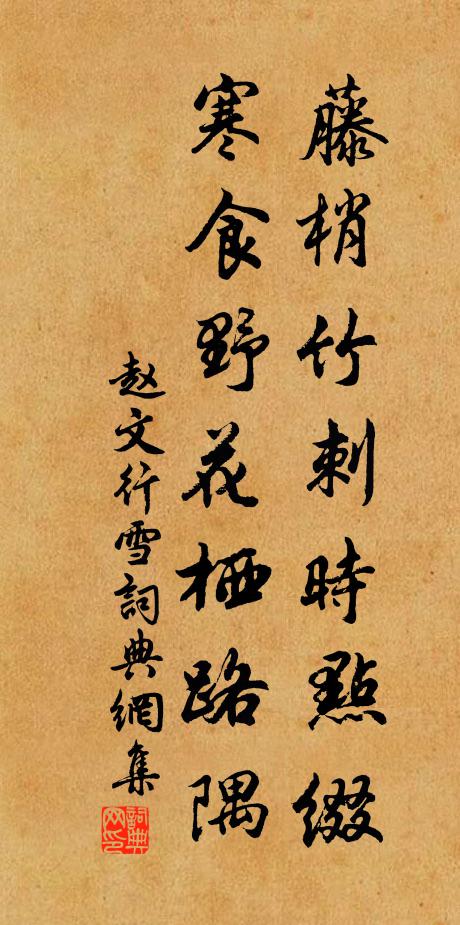 藤梢竹刺時點綴
寒食野花栖路隅
赵文行雪詞典網集
詞典网印